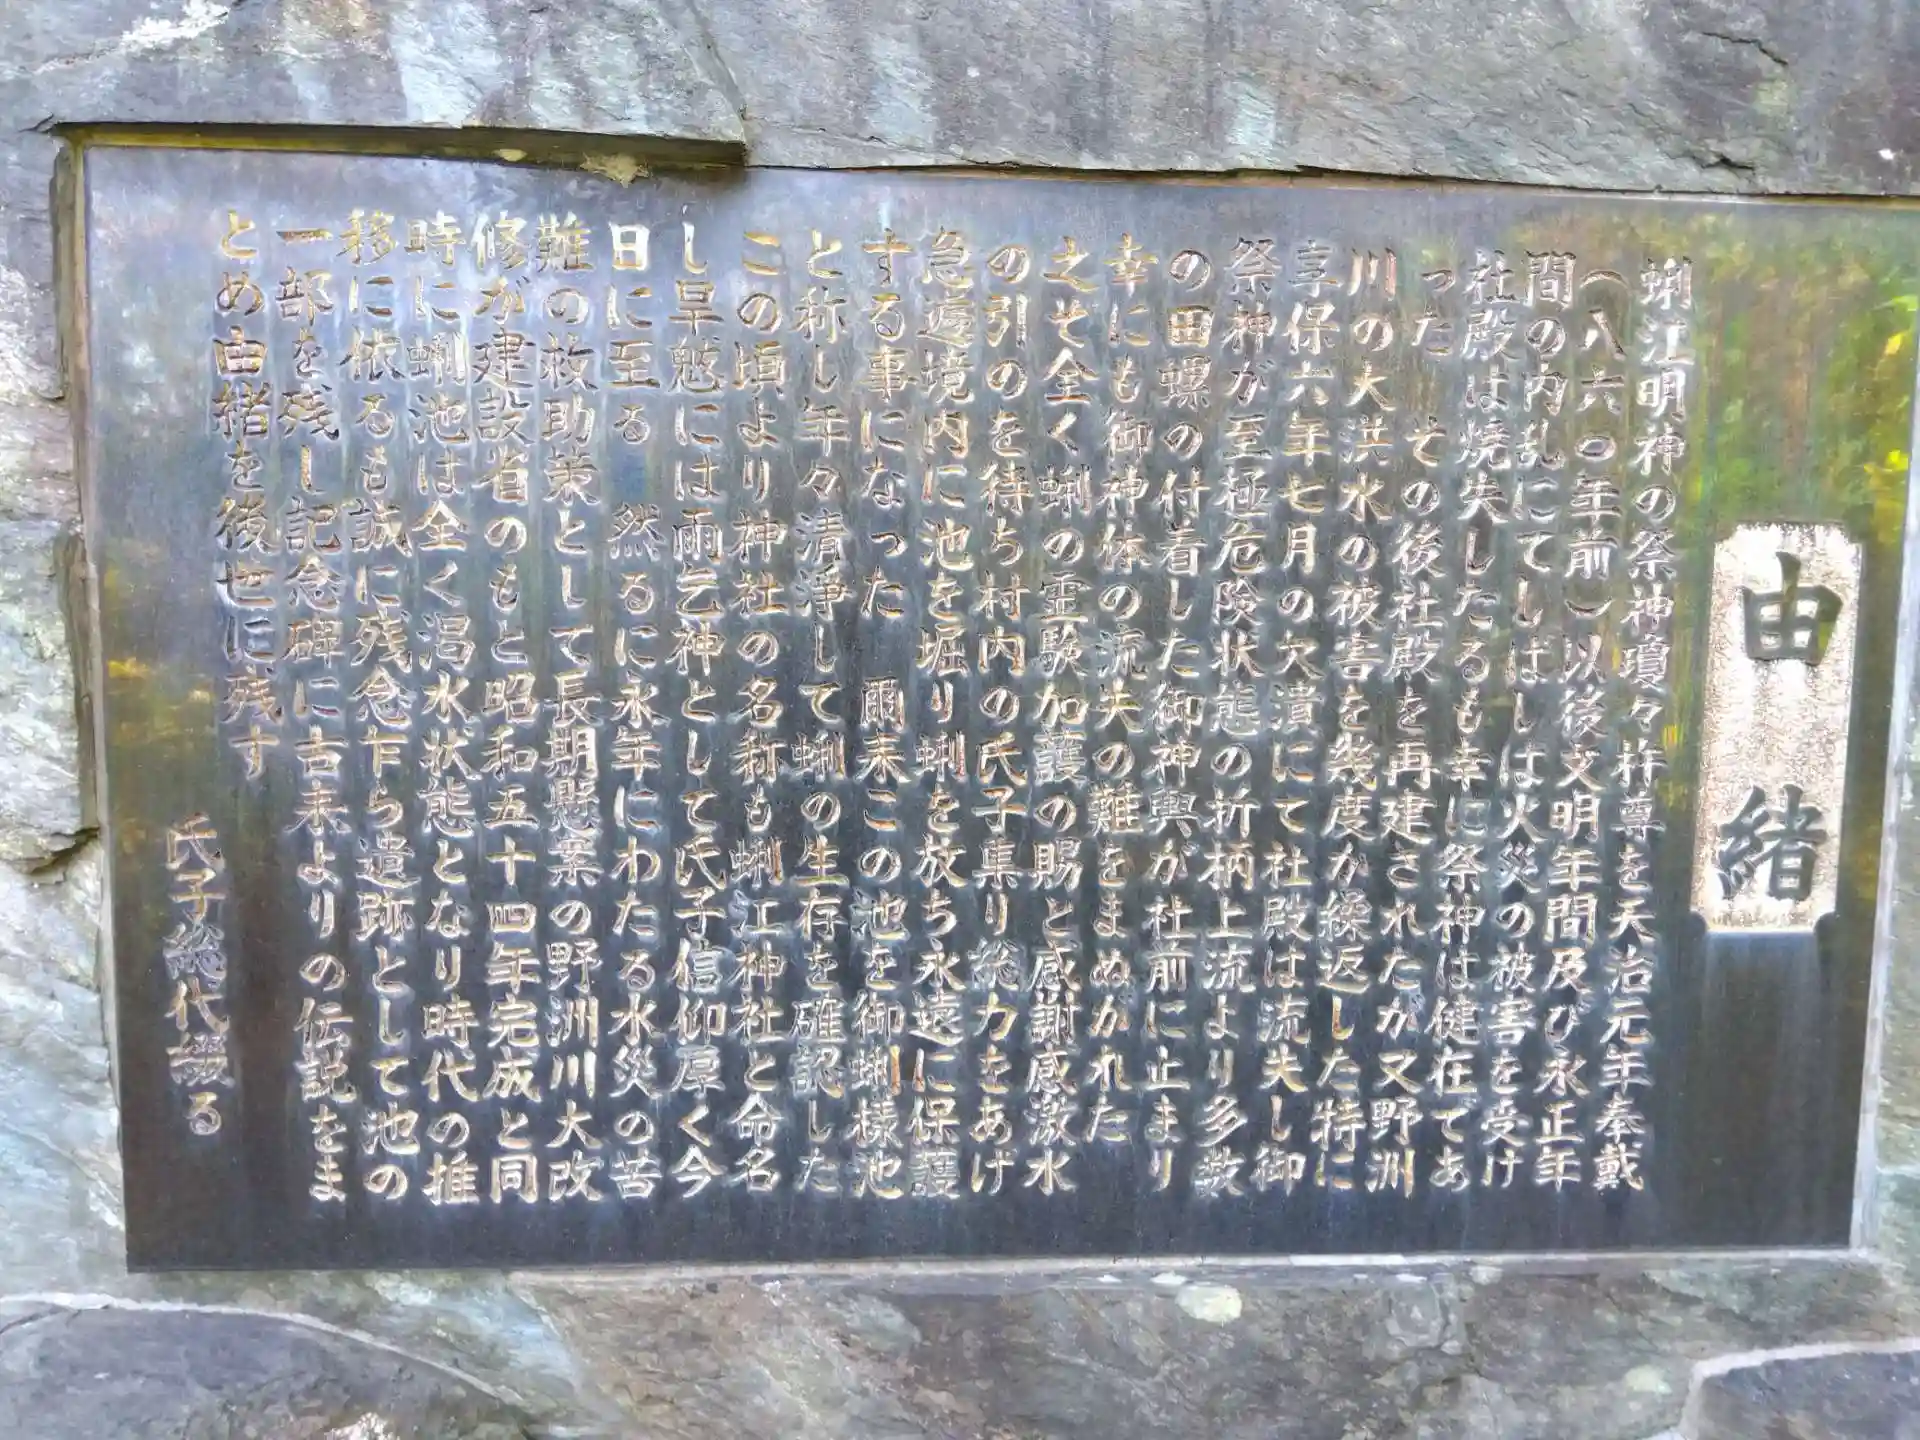 由緒
蜊江明神の祭神瓊々杵尊を天治元年奉戴
(八六〇年前)以後文明年間及び永正年
間の内乱にてしばしば火災の被害を受け
社殿は焼失したるも幸に祭神は健在であ
った その後社殿を再建されたが又野洲
川の大洪水の被害を幾度か繰返した特に
享保六年七月の欠潰にて社殿は流失し御
祭神が至極危険状態の折柄上流より多数
の田螺の付着した御神輿が社前に止まり
幸にも御神体の流失の難をまぬがれた
之そ全く蜊の霊験加護の賜と感謝感激水
の引のを待ち村内の氏子集り総力をあげ
急遽境内に池を堀り蜊を放ち永遠に保護
する事になった 爾来この池を御蜊様池
と称し年々清浄して蜊の生存を確認した
この頃より神社の名称も蜊江神社と命名
し旱魃には雨乞神として氏子信仰厚く今
日に至る 然るに永年にわたる水災の苦
難の救助策として長期懸案の野洲川大改
修が建設省のもと昭和五十四年完成と同
時に蜊池は全く渇水状態となり時代の推
移に依るも誠に残念乍ら遺跡として池の
一部を残し記念碑に古来よりの伝説をま
とめ由緒を後世に残す
氏子総代綴る